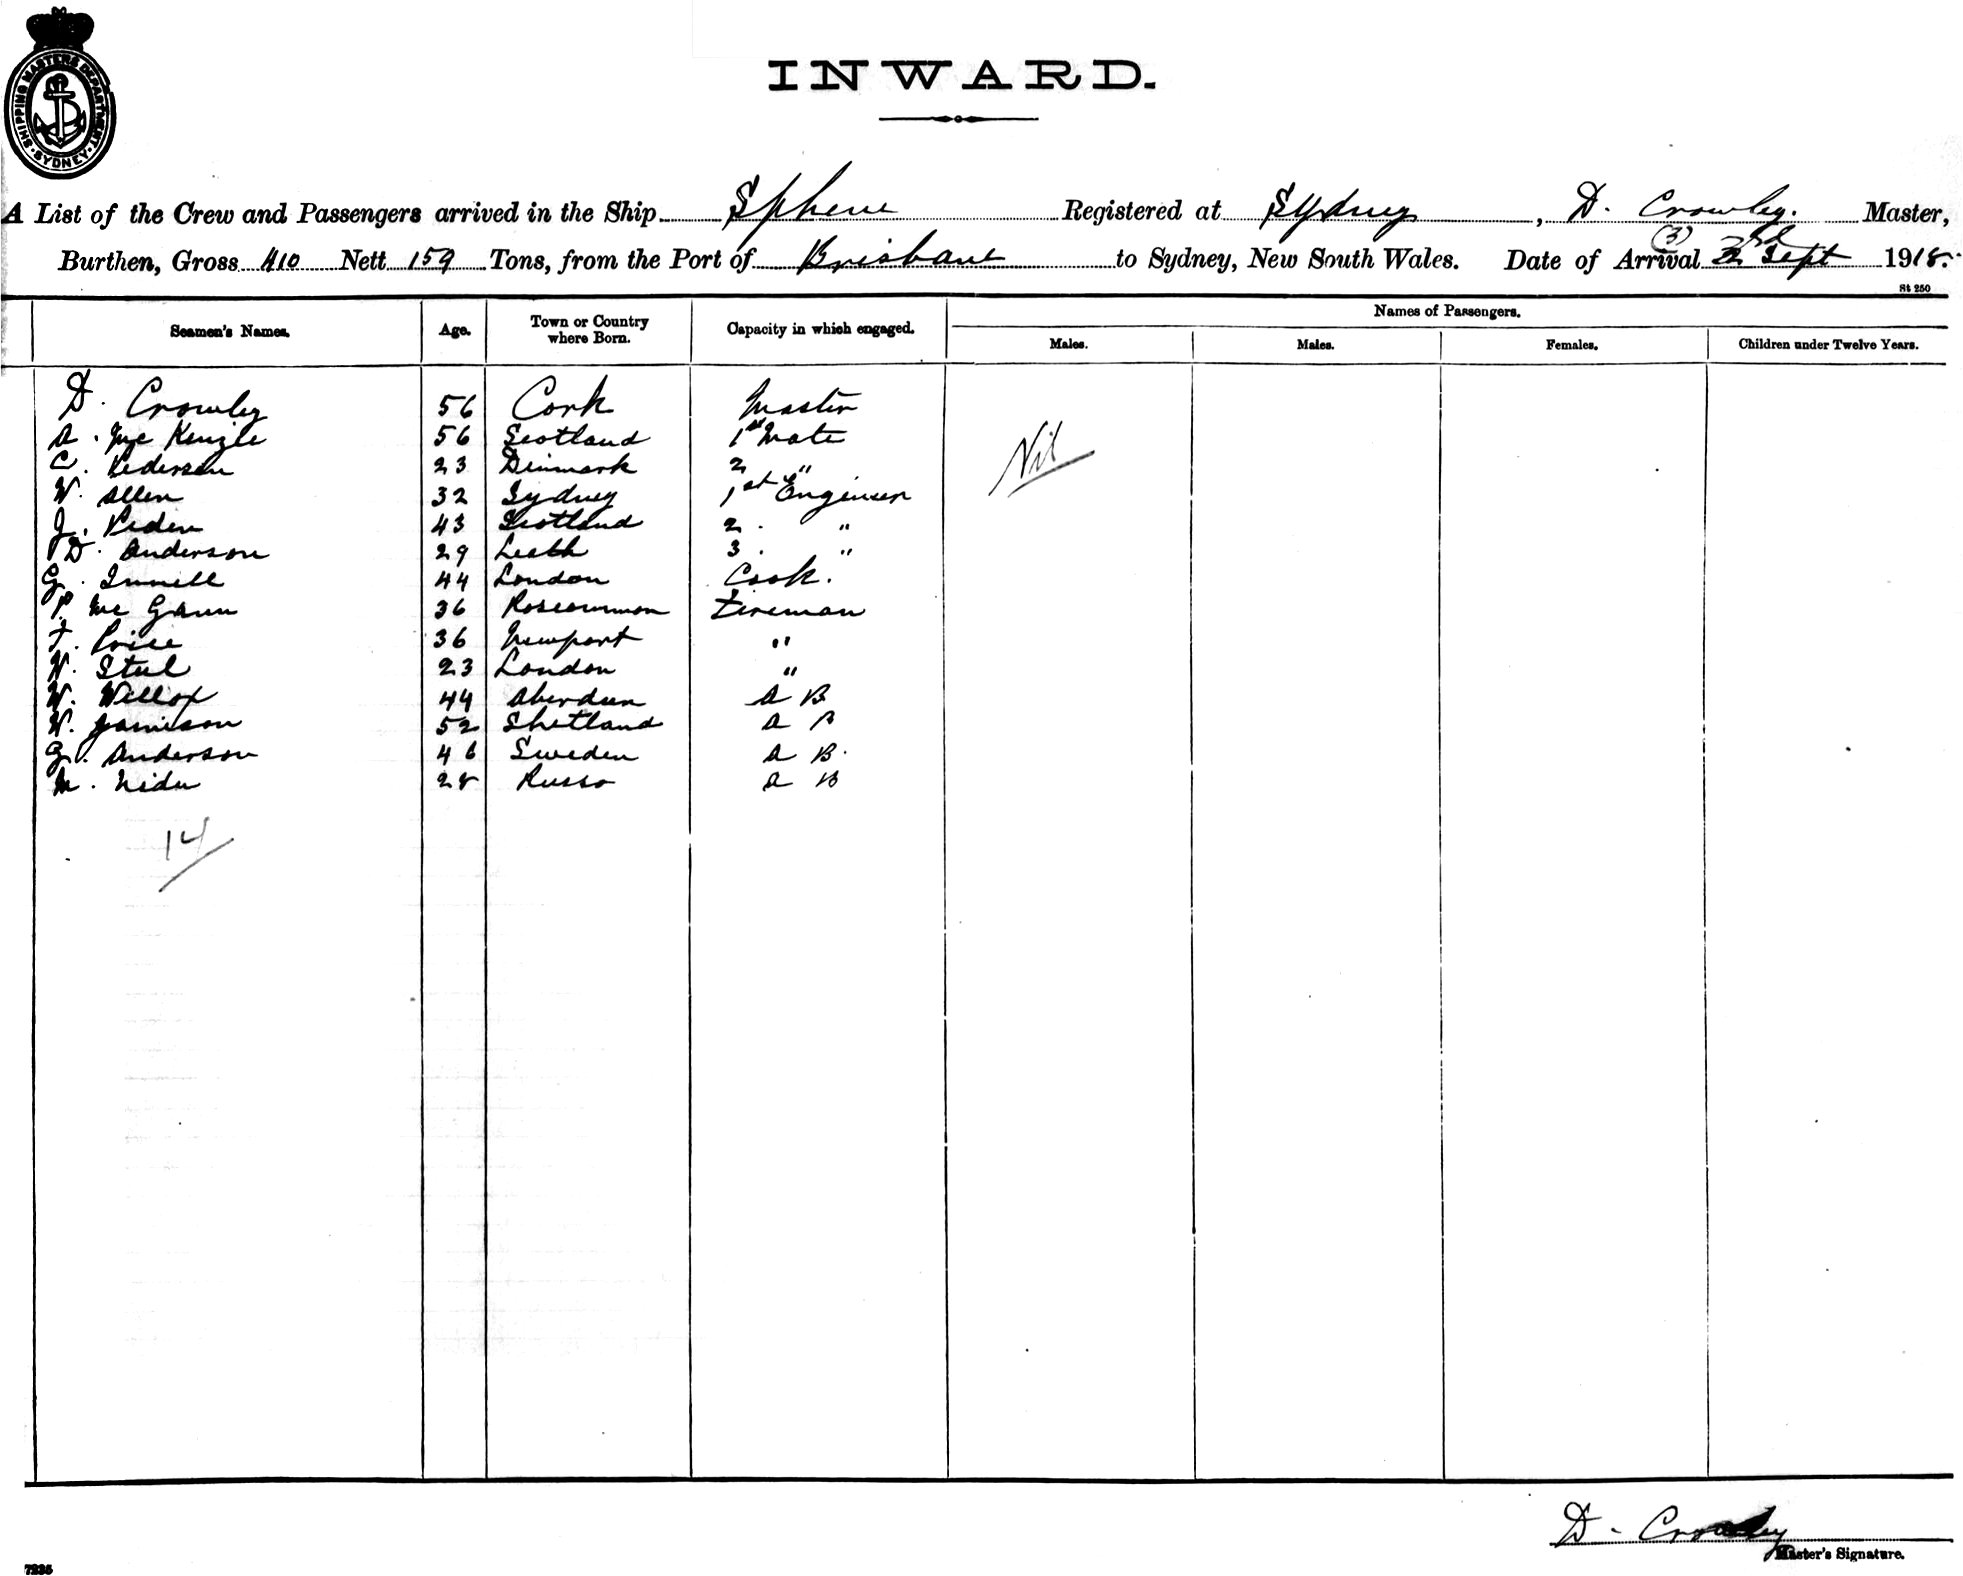 SHIPPING MASTERS DEPARTMENT
SYDNEY
INWARD.
A List of the Crew and Passengers arrived in the Ship Sphene Registered at Sydney, D. Crowley. Master,
Burthen, Gross 410 Nett 159 Tons, from the Port of Brisbane to Sydney, New South Wales. Date of Arrival (3) Sept 1918.
St 250
Seamen's Names. Age. Town or Country where Born. Capacity in which engaged. Names of Passengers.
Males. Males. Females. Children under Twelve Years.
D. Crowley 56 Cork Master
A. McKenzie 56 Scotland 1st Mate Nil
C. Pedersen 23 Denmark 2 "
W. Allen 32 Sydney 1st Engineer
J. Peden 43 Scotland 2. "
D. Anderson 29 Leith 3. "
G. 44 London Cook.
P. Mc Gann 36 Roscommon Fireman
F. Price 36 Newport "
W. Steel 23 London "
W. Willox 44 Aberdeen A B
W. Jamieson 52 Shetland A B
G. Anderson 46 Sweden A B.
M. 28 Russo A B
14
D. Crowley
Master's Signature.
7235